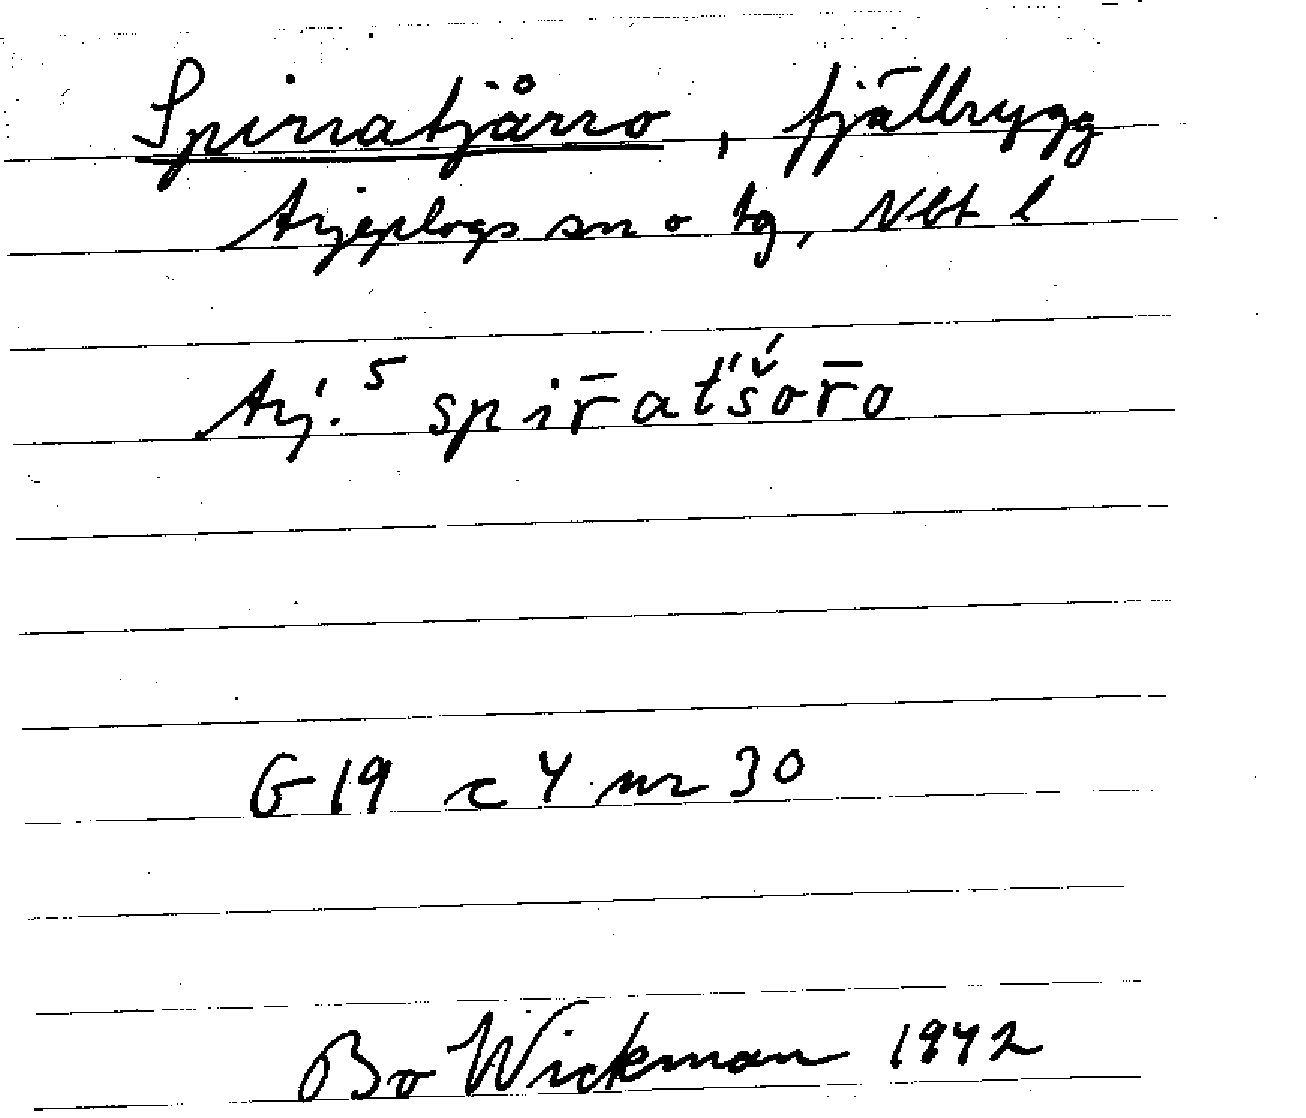 Spirratjårro, fjällrygg
Arjeplogs sn o tg, Nbt l
Arj.⁵ spir̄at́'š́or̄o
G 19 c 4 nr 30
Bo Wickman 1942